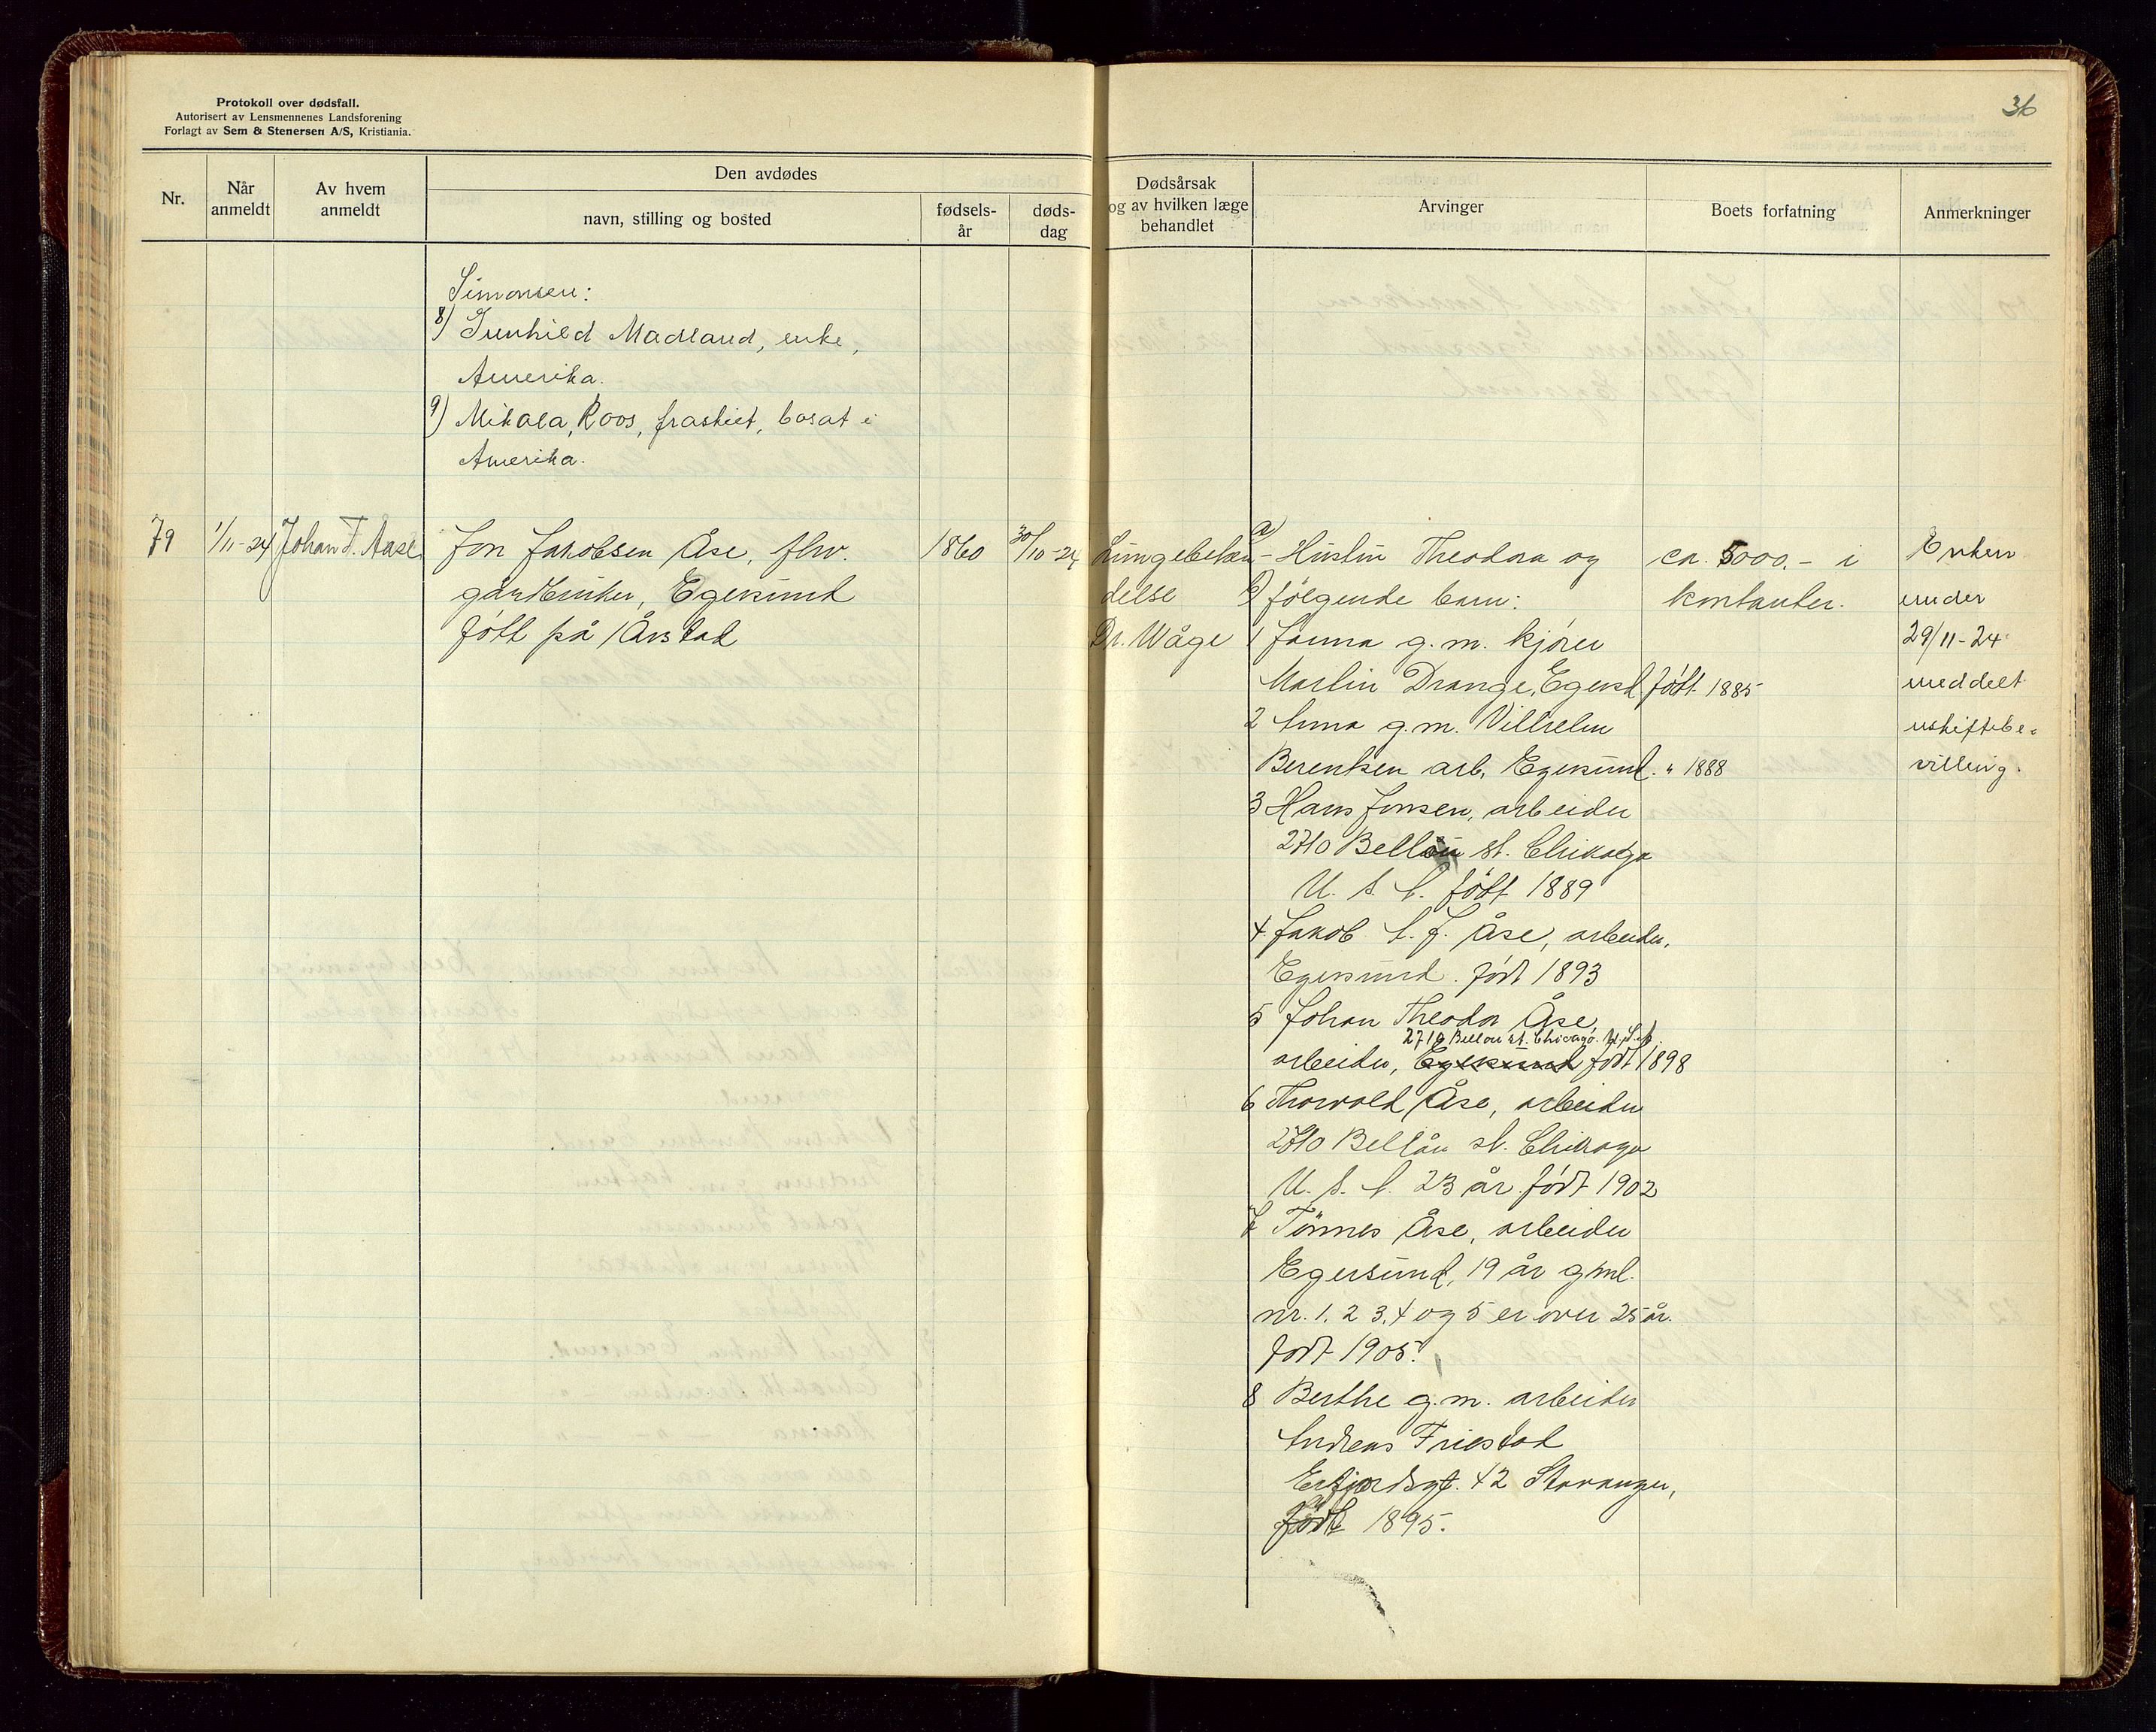 Protokoll over dødsfall.
Autorisert av Lensmennenes Landsforening
Forlagt av Sem & Stenersen A/S, Kristiania.
36
Nr.
Når anmeldt
Av hvem anmeldt
Den avdødes
navn, stilling og bosted
fødsels-år
døds-dag
Dødsårsak
og av hvilken læge
behandlet
Arvinger
Boets forfatning
Anmerkninger
Simonsen:
8) Gunhild Madland, enke,
Amerika.
9) Mikala, Roos, fraskiet, bosat i
Amerika.
79
1/11-24
Johan T. Aase
Jon Jakobsen Åse, fhv.
gårdbruker, Egersund
født på Årstad
1860
30/10-24
Lungebeten-
delse
Dr. Wåge
a) Hustru Theodora og
b) følgende barn:
1 Janna g.m. kjører
Martin Drange, Egersd. født 1885
2 Anna g.m. Vilhelm
Berentsen arb. Egersund. " 1888
3 Hans Jonsen, arbeider
2710 Bellån st. Chikago
U. S. A. født 1889
4 Jakob A. J. Åse, arbeider,
Egersund. født 1893
5 Johan Theodor Åse,
2710 Bellou st. Chicago. U.S.A.
arbeider, Egersund født 1898
6 Thorvald Åse, arbeider
2710 Bellån st. Chikago
U. S. A. 23 år født 1902
7 Tönnes Åse, arbeider
Egersund, 19 år gml.
nr. 1. 2 3. 4 og 5 er over 25 år.
født 1905.
8 Berthe g.m. arbeider
Andreas Friestad
Erfjordsgt. 42 Stavanger,
født 1895.
ca. 5000.- i
kontanter.
Enken
under
29/11-24
meddelt
uskiftebe-
villing.